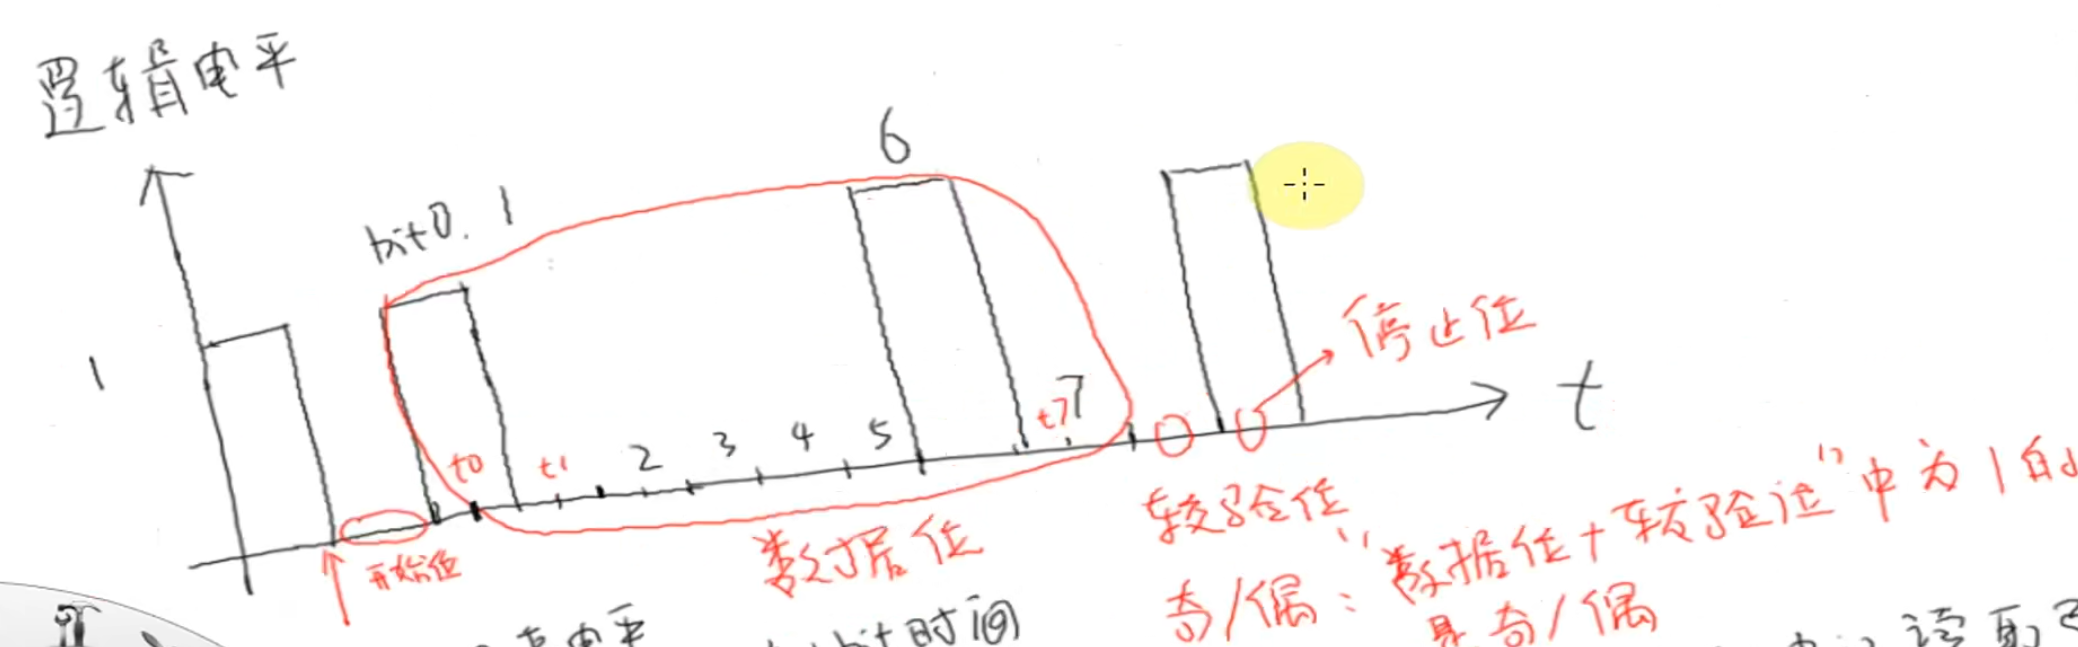 逻辑电平
6
bit0. 1
停止位
1
t
t0 t1 2 3 4 5 t7 7
开始位
数据位
较验位
奇/偶:"数据位+较验位"中为1的
是奇/偶
电平
bit时间
读取